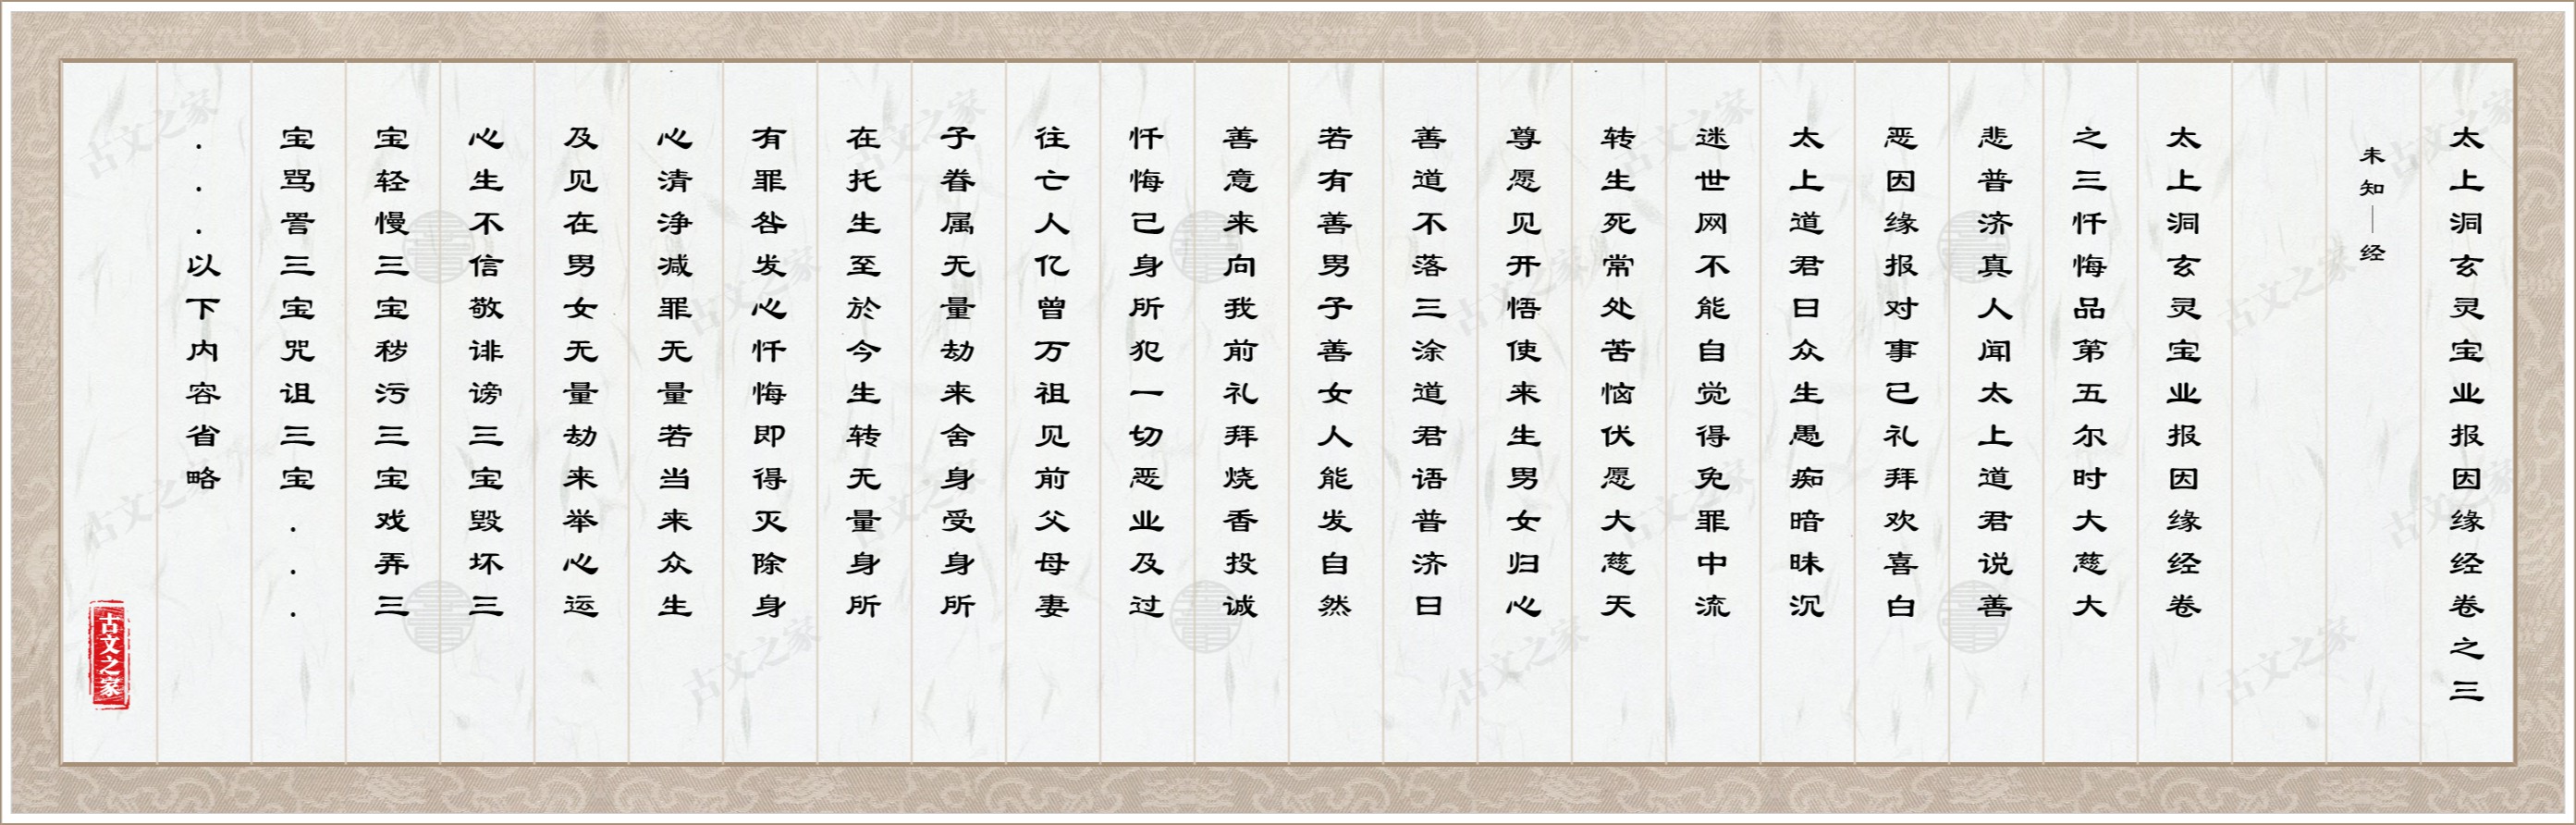 太上洞玄灵宝业报因缘经卷之三
未知｜经
太上洞玄灵宝业报因缘经卷
之三忏悔品第五尔时大慈大
悲普济真人闻太上道君说善
恶因缘报对事已礼拜欢喜白
太上道君曰众生愚痴暗昧沉
迷世网不能自觉得免罪中流
转生死常处苦恼伏愿大慈天
尊愿见开悟使来生男女归心
善道不落三涂道君语普济曰
若有善男子善女人能发自然
善意来向我前礼拜烧香投诚
忏悔己身所犯一切恶业及过
往亡人亿曾万祖见前父母妻
子眷属无量劫来舍身受身所
在托生至於今生转无量身所
有罪咎发心忏悔即得灭除身
心清净减罪无量若当来众生
及见在男女无量劫来举心运
心生不信敬诽谤三宝毁坏三
宝轻慢三宝秽污三宝戏弄三
宝骂詈三宝咒诅三宝...
...以下内容省略
古文之家